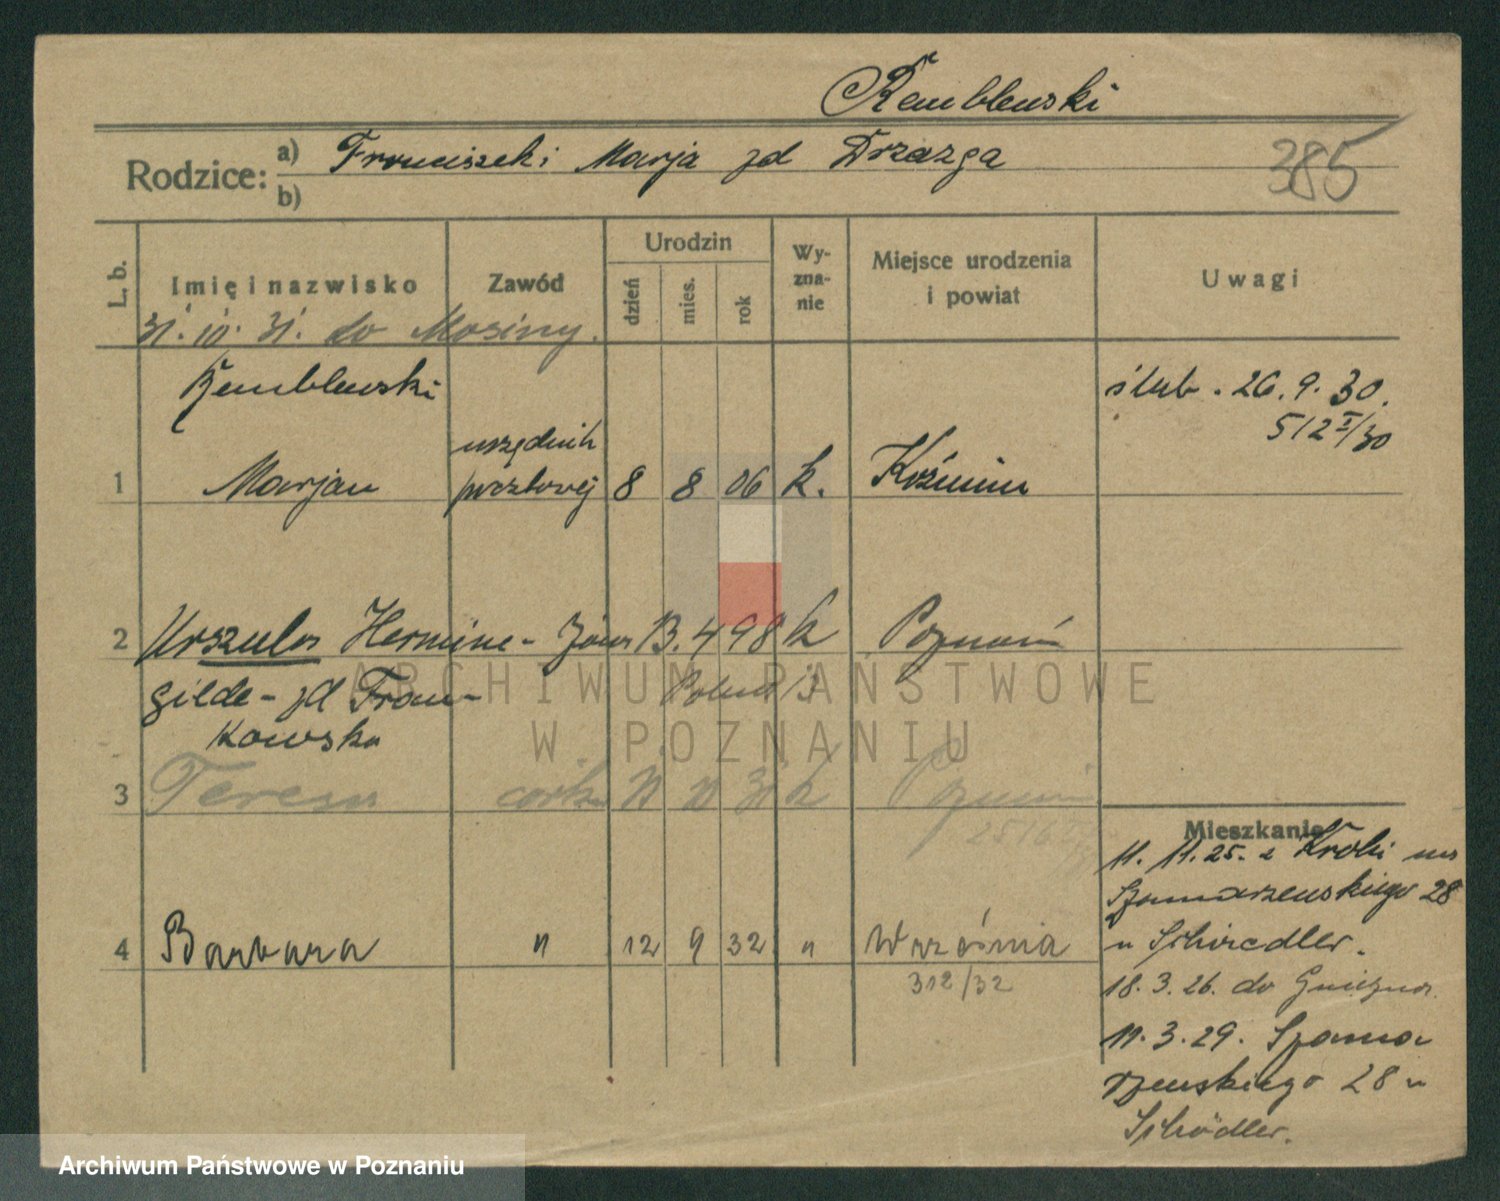 Remblewski
Rodzice: a) Franciszek i Marja zd Drzazga
b)
385
L. b.
Imię i nazwisko
Zawód
Urodzin
dzień
mies.
rok
Wy-
zna-
nie
Miejsce urodzenia
i powiat
Uwagi
31. 10. 31. do Mosiny.
Remblewski
ślub. 26. 9. 30.
512 I/30
urzędnik
1 Marjan pocztowej 8 8 06 k. Koźmin
2 Urszula Hermine- 13. 4 98 k Poznań
gilde- zd Fran-
kowska
3 Teresa córka 31 k Poznań
Mieszkanie
11. 11. 25. z Krobi na
Szamarzewskiego 28
4 Barbara " 12 9 32 " Września
u Schoedler.
312/32
18. 3. 26. do Gniezna.
11. 3. 29. Szama-
rzewskiego 28 u
Schödler.
ARCHIWUM PAŃSTWOWE
W POZNANIU
Archiwum Państwowe w Poznaniu